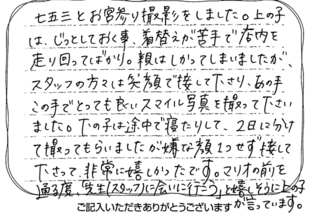 七五三とお宮参り撮影をしました。上の子
は、じっとしておく事、着替えが苦手で店内を
走り回ってばかり。親はしかってしまいましたが、
スタッフの方々は笑顔で接して下さり、あの手
この手でとっても良いスマイル写真を撮って下さい
ました。下の子は途中で寝たりして、2日に分け
て撮ってもらいましたが嫌な顔1つせず接して
下さって、非常に嬉しかったです。マリオの前を
通る度、「先生(スタッフ)に会いに行こう」と嬉しそうに上の子
が言っています。
ご記入いただきありがとうございます